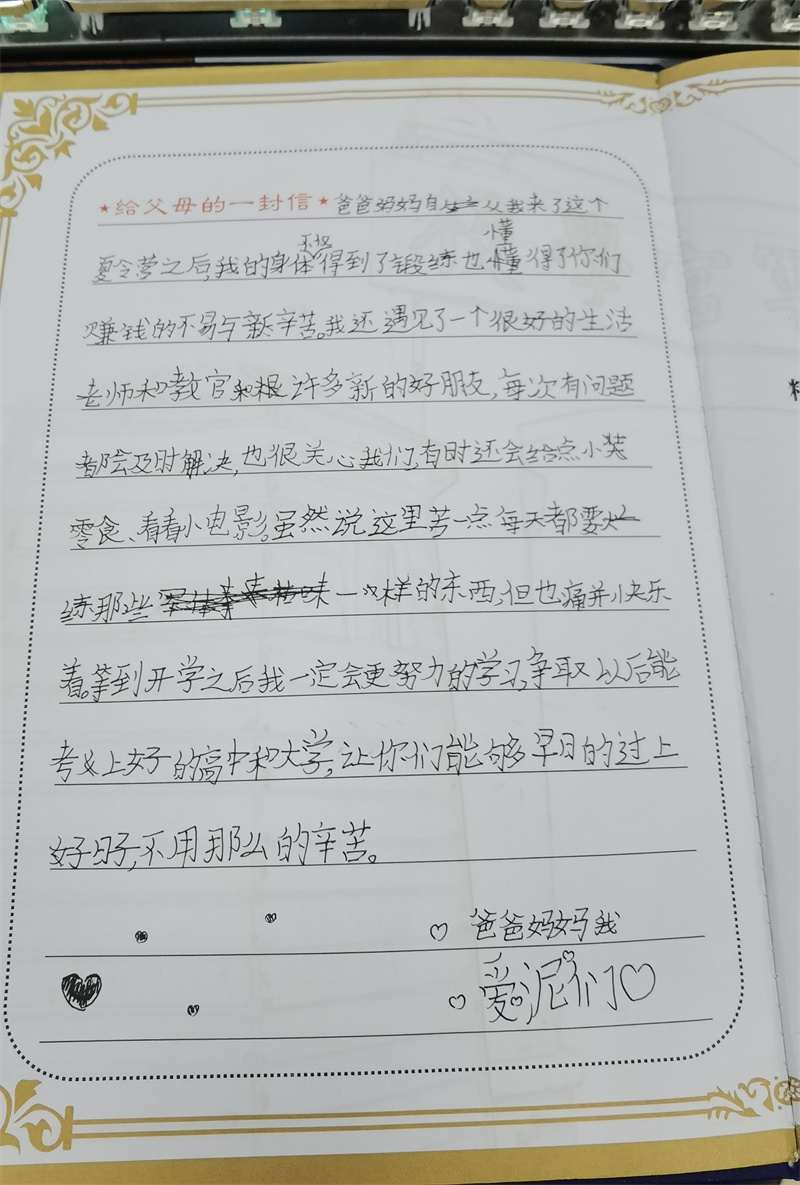 ★给父母的一封信★爸爸妈妈自从我来了这个
夏令营之后,我的身体不仅得到了锻练也懂得了你们
赚钱的不易与辛苦。我还遇见了一个很好的生活
老师和教官和许多新的好朋友,每次有问题
都会及时解决,也很关心我们,有时还会给点小
零食、看看小电影。虽然说这里苦一点每天都要
练那些一样的东西,但也痛并快乐
着。等到开学之后我一定会更努力的学习,争取以后能
考上好的高中和大学,让你们能够早日的过上
好日子,不用那么的辛苦。
爸爸妈妈我
爱泥们